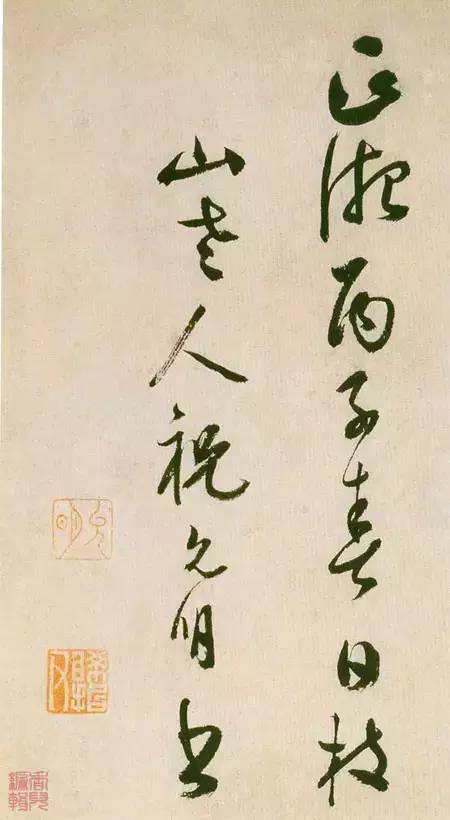 正德丙子春日枝
山老人祝允明書
允明